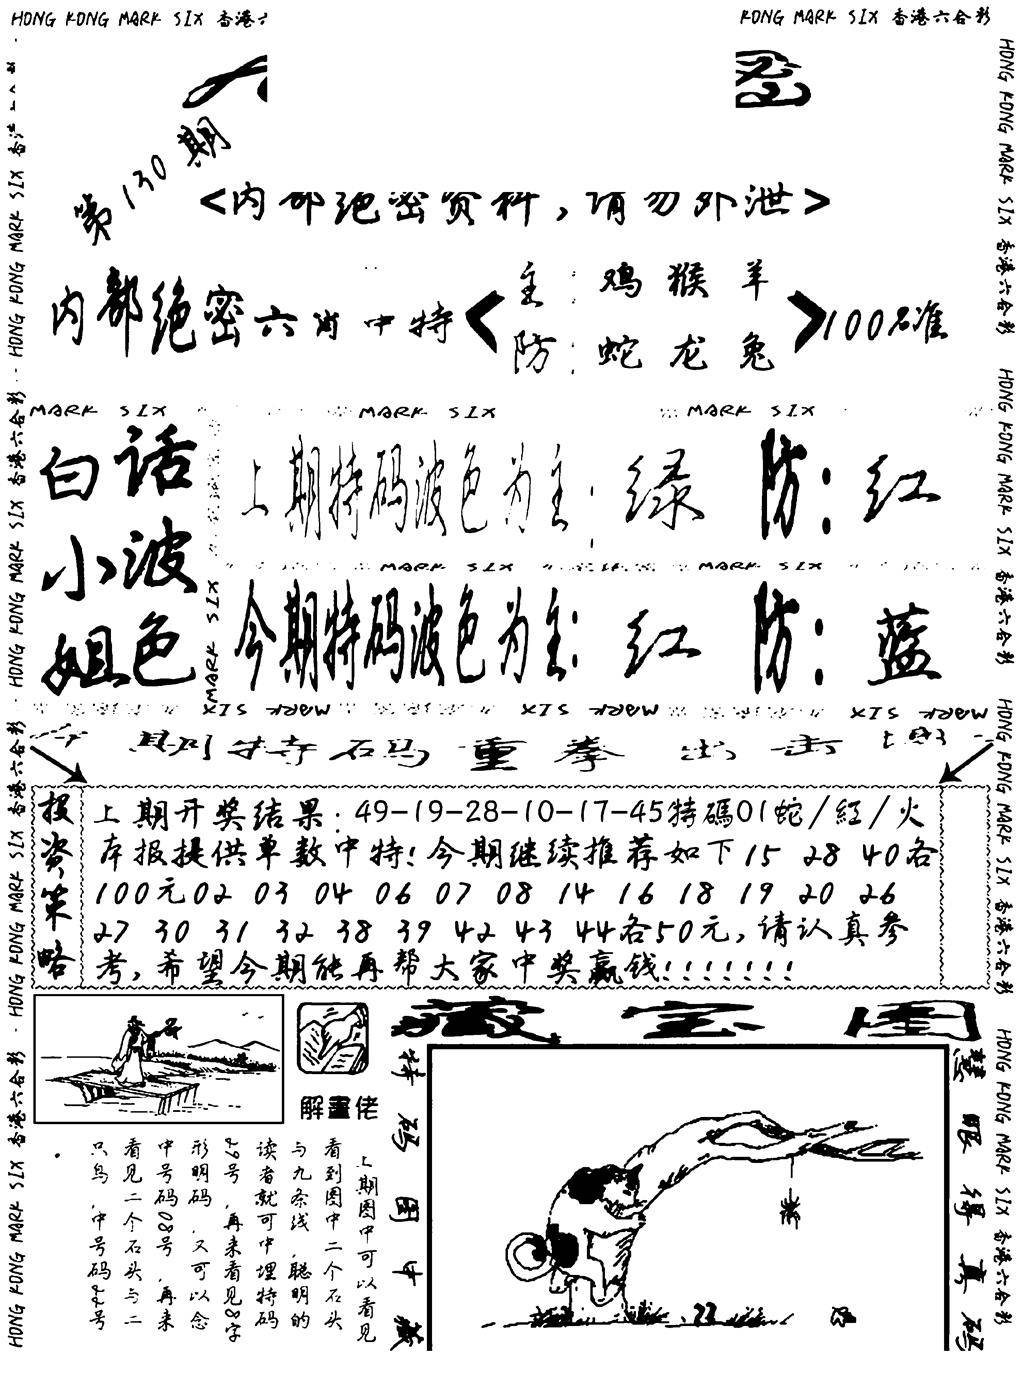 HONG KONG MARK SIX 香港
KONG MARK SIX 香港六合彩
第130期
<内部绝密资料,请勿外泄>
内部绝密六肖中特
主:鸡猴羊
防:蛇龙兔
100%准
MARK SIX MARK SIX MARK SIX
白话
小波
姐色
上期特码波色为主:绿 防:红
MARK SIX MARK SIX MARK SIX
今期特码波色为主:红 防:蓝
MARK SIX MARK SIX MARK SIX
期特码重拳出击
投资策略
上期开奖结果:49-19-28-10-17-45特碼01蛇/紅/火
本报提供单数中特!今期继续推荐如下15 28 40各
100元02 03 04 06 07 08 14 16 18 19 20 26
27 30 31 32 38 39 42 43 44各50元,请认真参
考,希望今期能再帮大家中奖赢钱!!!!!!!
藏宝图
解畫佬
特码图中藏
慧眼得真码
上期图中可以看见
看到图中二个石头
与九条线,聪明的
读者就可中埋特码
29号,再来看见8字
形明码,又可以念
中号码08号,再来
看见二个石头与二
只鸟,中号码22号
HONG KONG MARK SIX 香港六合彩
HONG KONG MARK SIX 香港六合彩
HONG KONG MARK SIX 香港六合彩
HONG KONG MARK SIX 香港六合彩
HONG KONG MARK SIX 香港六合彩
HONG KONG MARK SIX 香港六合彩
HONG KONG MARK SIX 香港六合彩